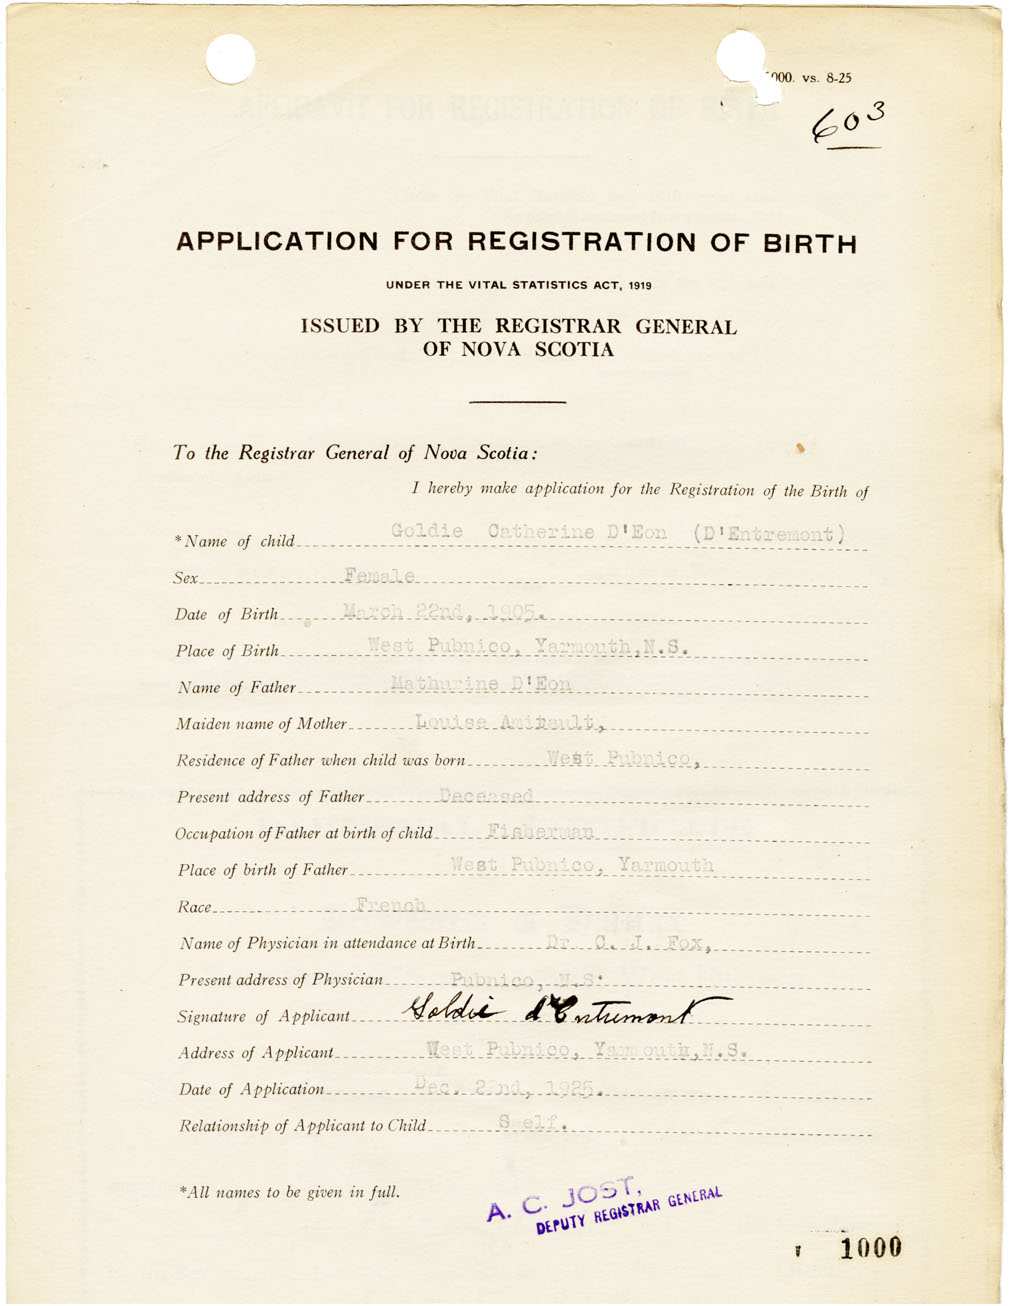 000. vs. 8-25
603
APPLICATION FOR REGISTRATION OF BIRTH
UNDER THE VITAL STATISTICS ACT, 1919
ISSUED BY THE REGISTRAR GENERAL
OF NOVA SCOTIA
To the Registrar General of Nova Scotia:
I hereby make application for the Registration of the Birth of
*Name of child Goldie Catherine D'Eon (D'Entremont)
Sex Female
Date of Birth March 22nd, 1905.
Place of Birth West Pubnico, Yarmouth,N.S.
Name of Father Mathurine D'Eon
Maiden name of Mother Louise Amirault,
Residence of Father when child was born West Pubnico,
Present address of Father Deceased
Occupation of Father at birth of child Fisherman
Place of birth of Father West Pubnico, Yarmouth
Race French
Name of Physician in attendance at Birth Dr. C. J. Fox,
Present address of Physician Pubnico, N.S.
Signature of Applicant Goldie d'Entremont
Address of Applicant West Pubnico, Yarmouth,N.S.
Date of Application Dec. 22nd, 1925.
Relationship of Applicant to Child Self.
*All names to be given in full.
A. C. JOST,
DEPUTY REGISTRAR GENERAL
1000